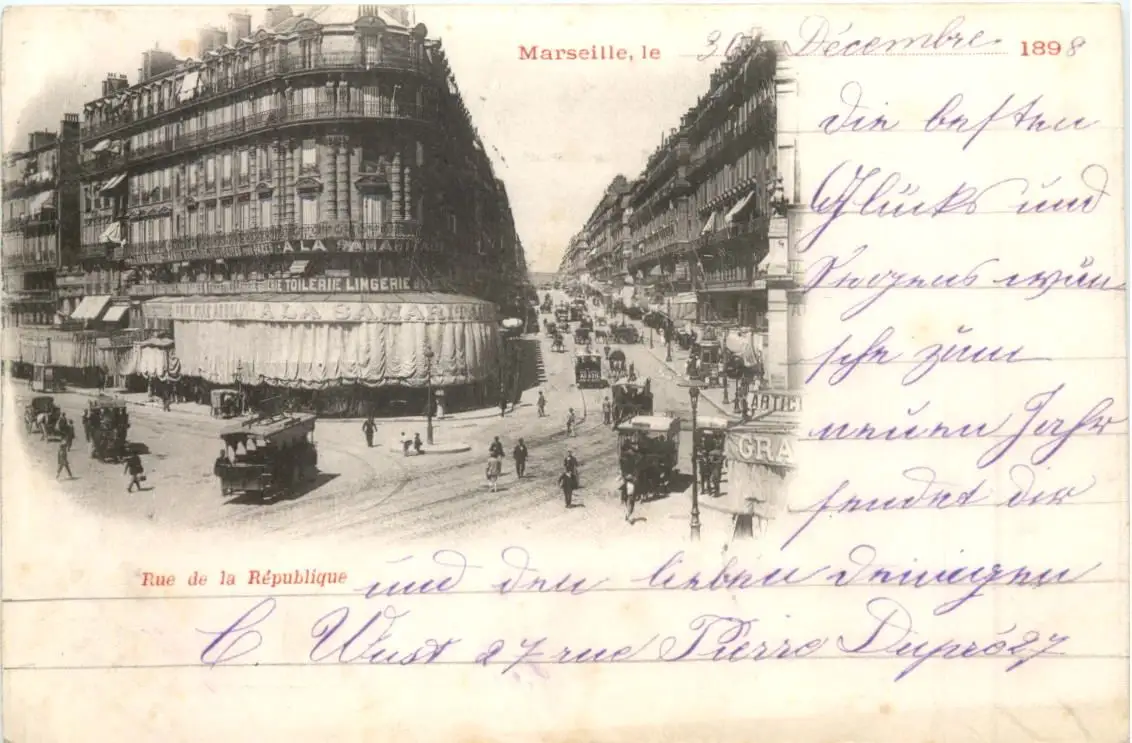 Marseille, le 30 Décembre 1898
Die besten
Glücks und
Segens wün
sche zum
neuen Jahr
sendet dir
und den lieben deinigen
C. Wust 27 rue Pierre Dupré 27
A LA SAMARITAINE
TOILERIE LINGERIE
A LA SAMARIT
ARTICL
GRA
Rue de la République